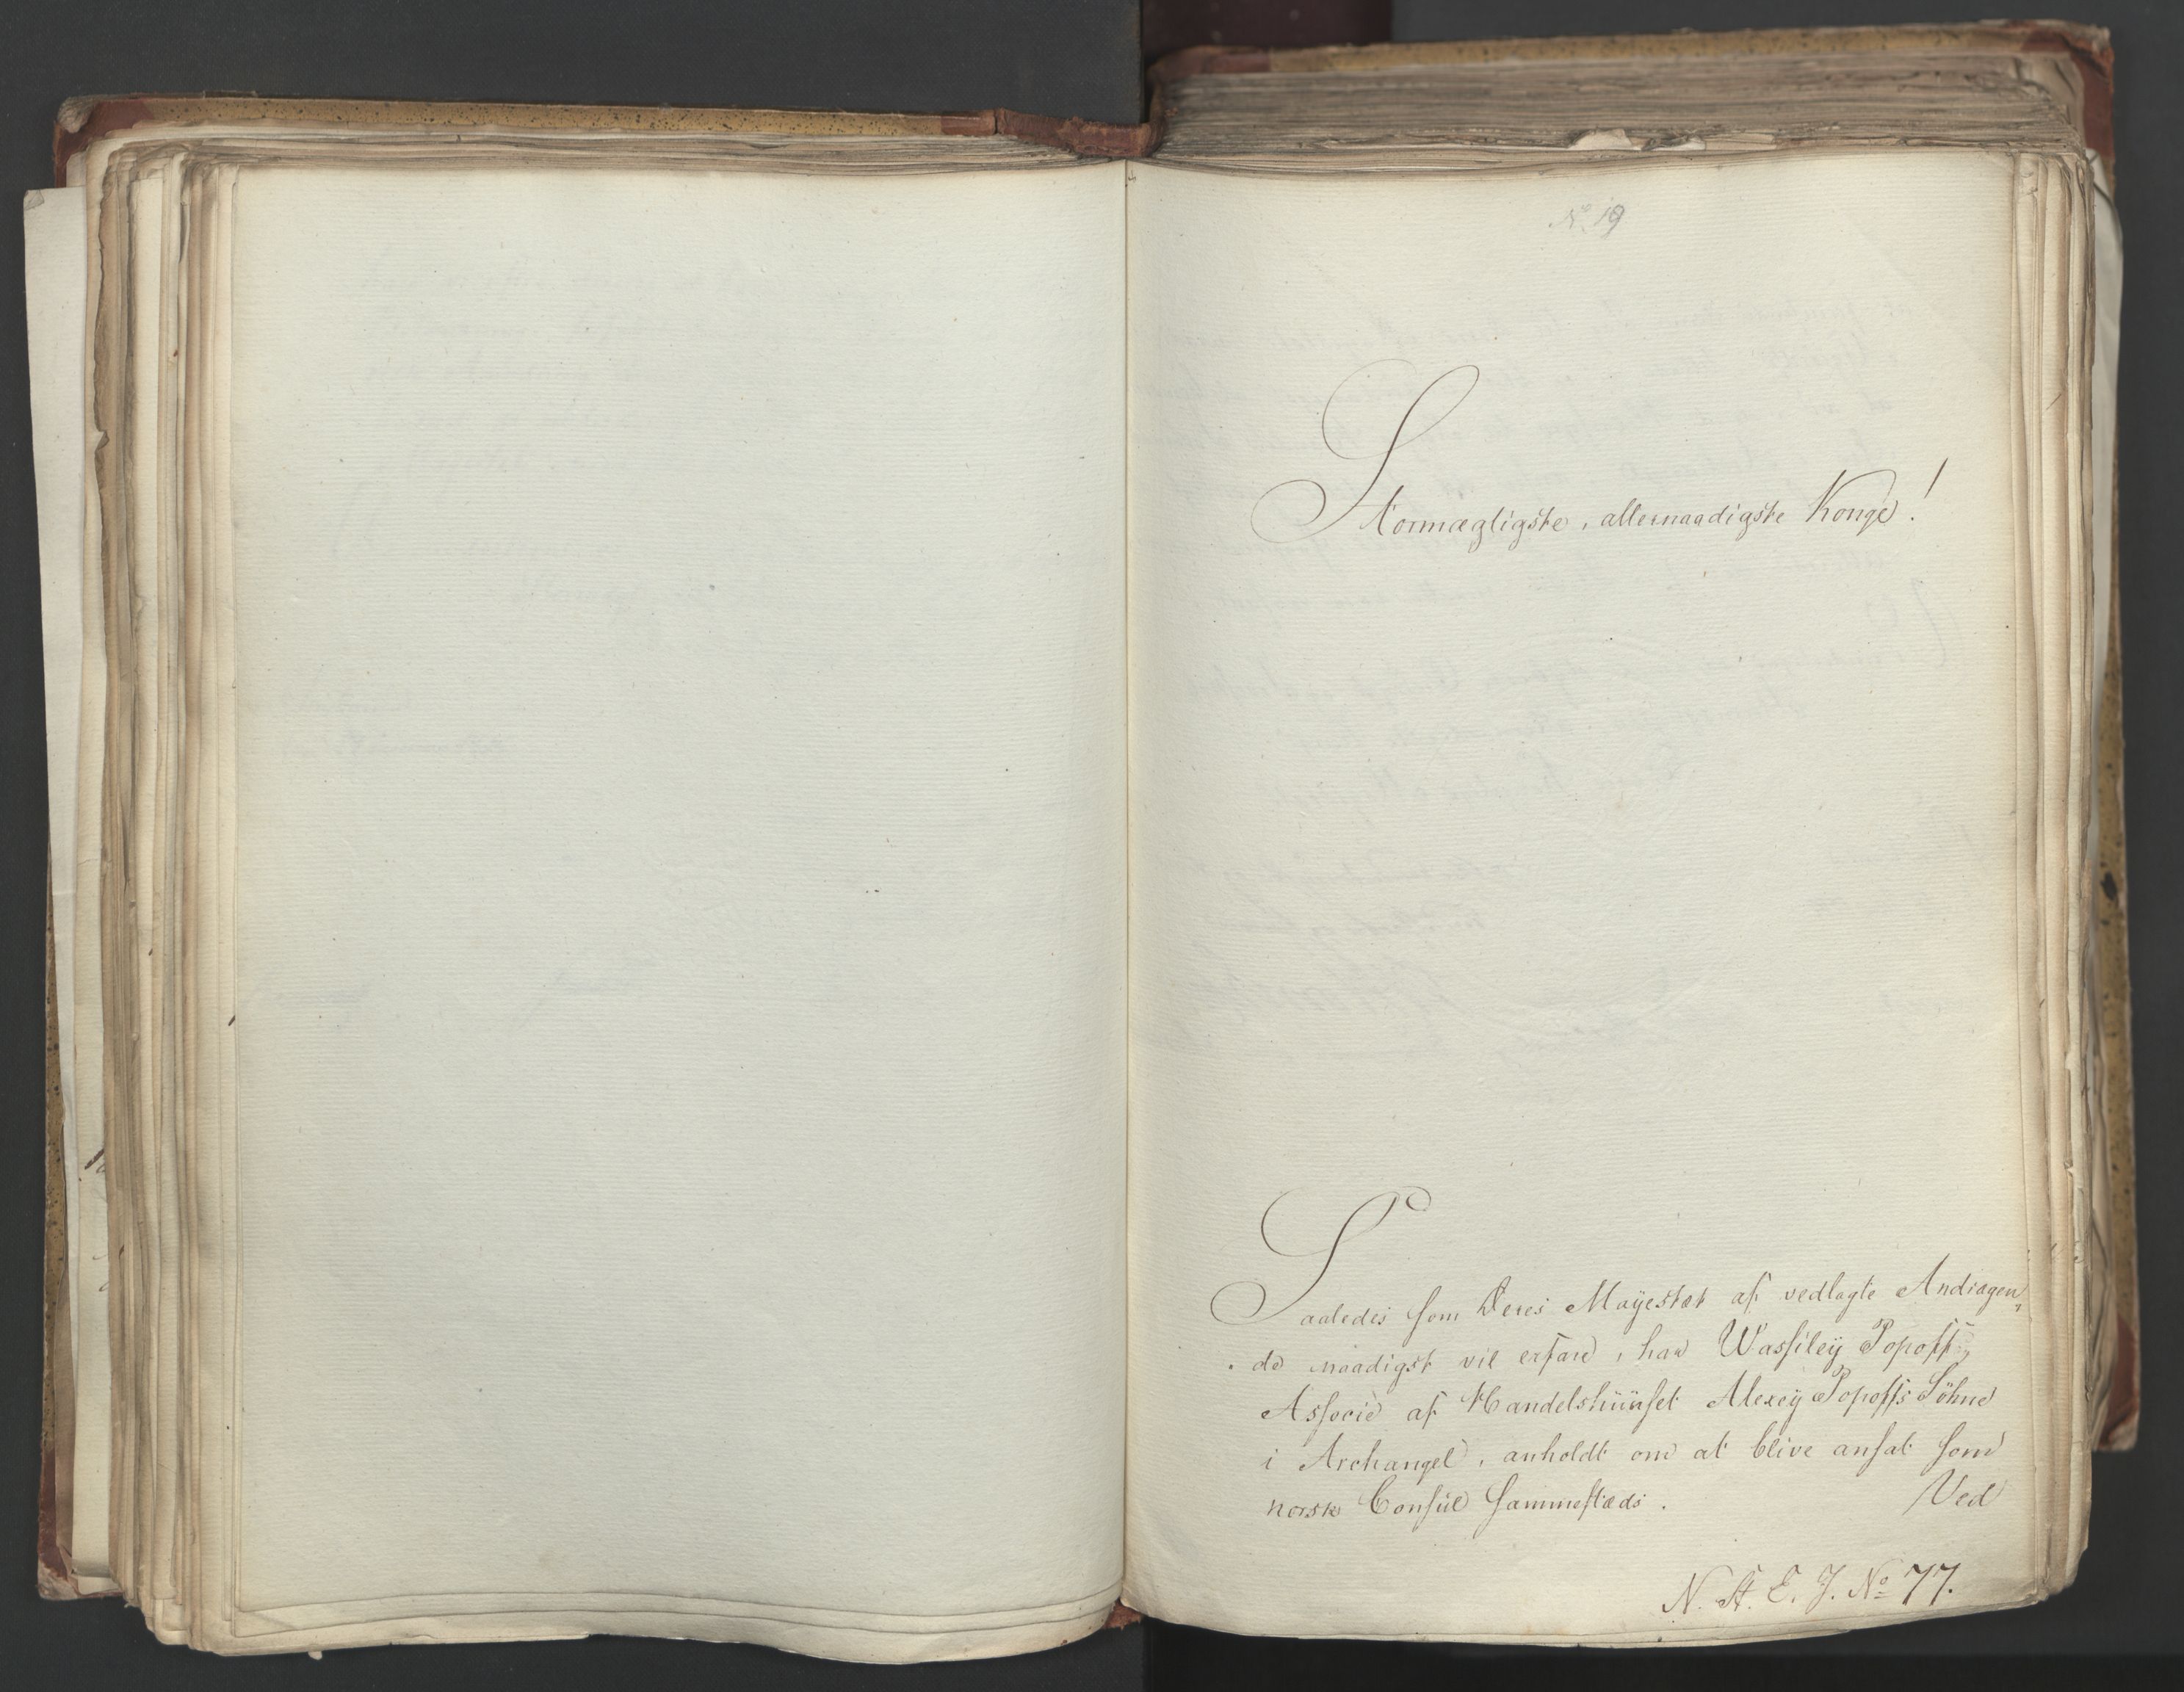 No 19
Stormægtigste, allernaadigste Konge!
Saaledes som Deres Mayestæt af vedlagte Andragen„
de naadigst vil erfare, har Wassiley Popoff,
Associe af Handelshuuset Alexey Popoffs Söhne
i Archangel, anholdt om at blive ansat som
norsk Consul sammestæds.
Ved
N. St. E. J. No 77.